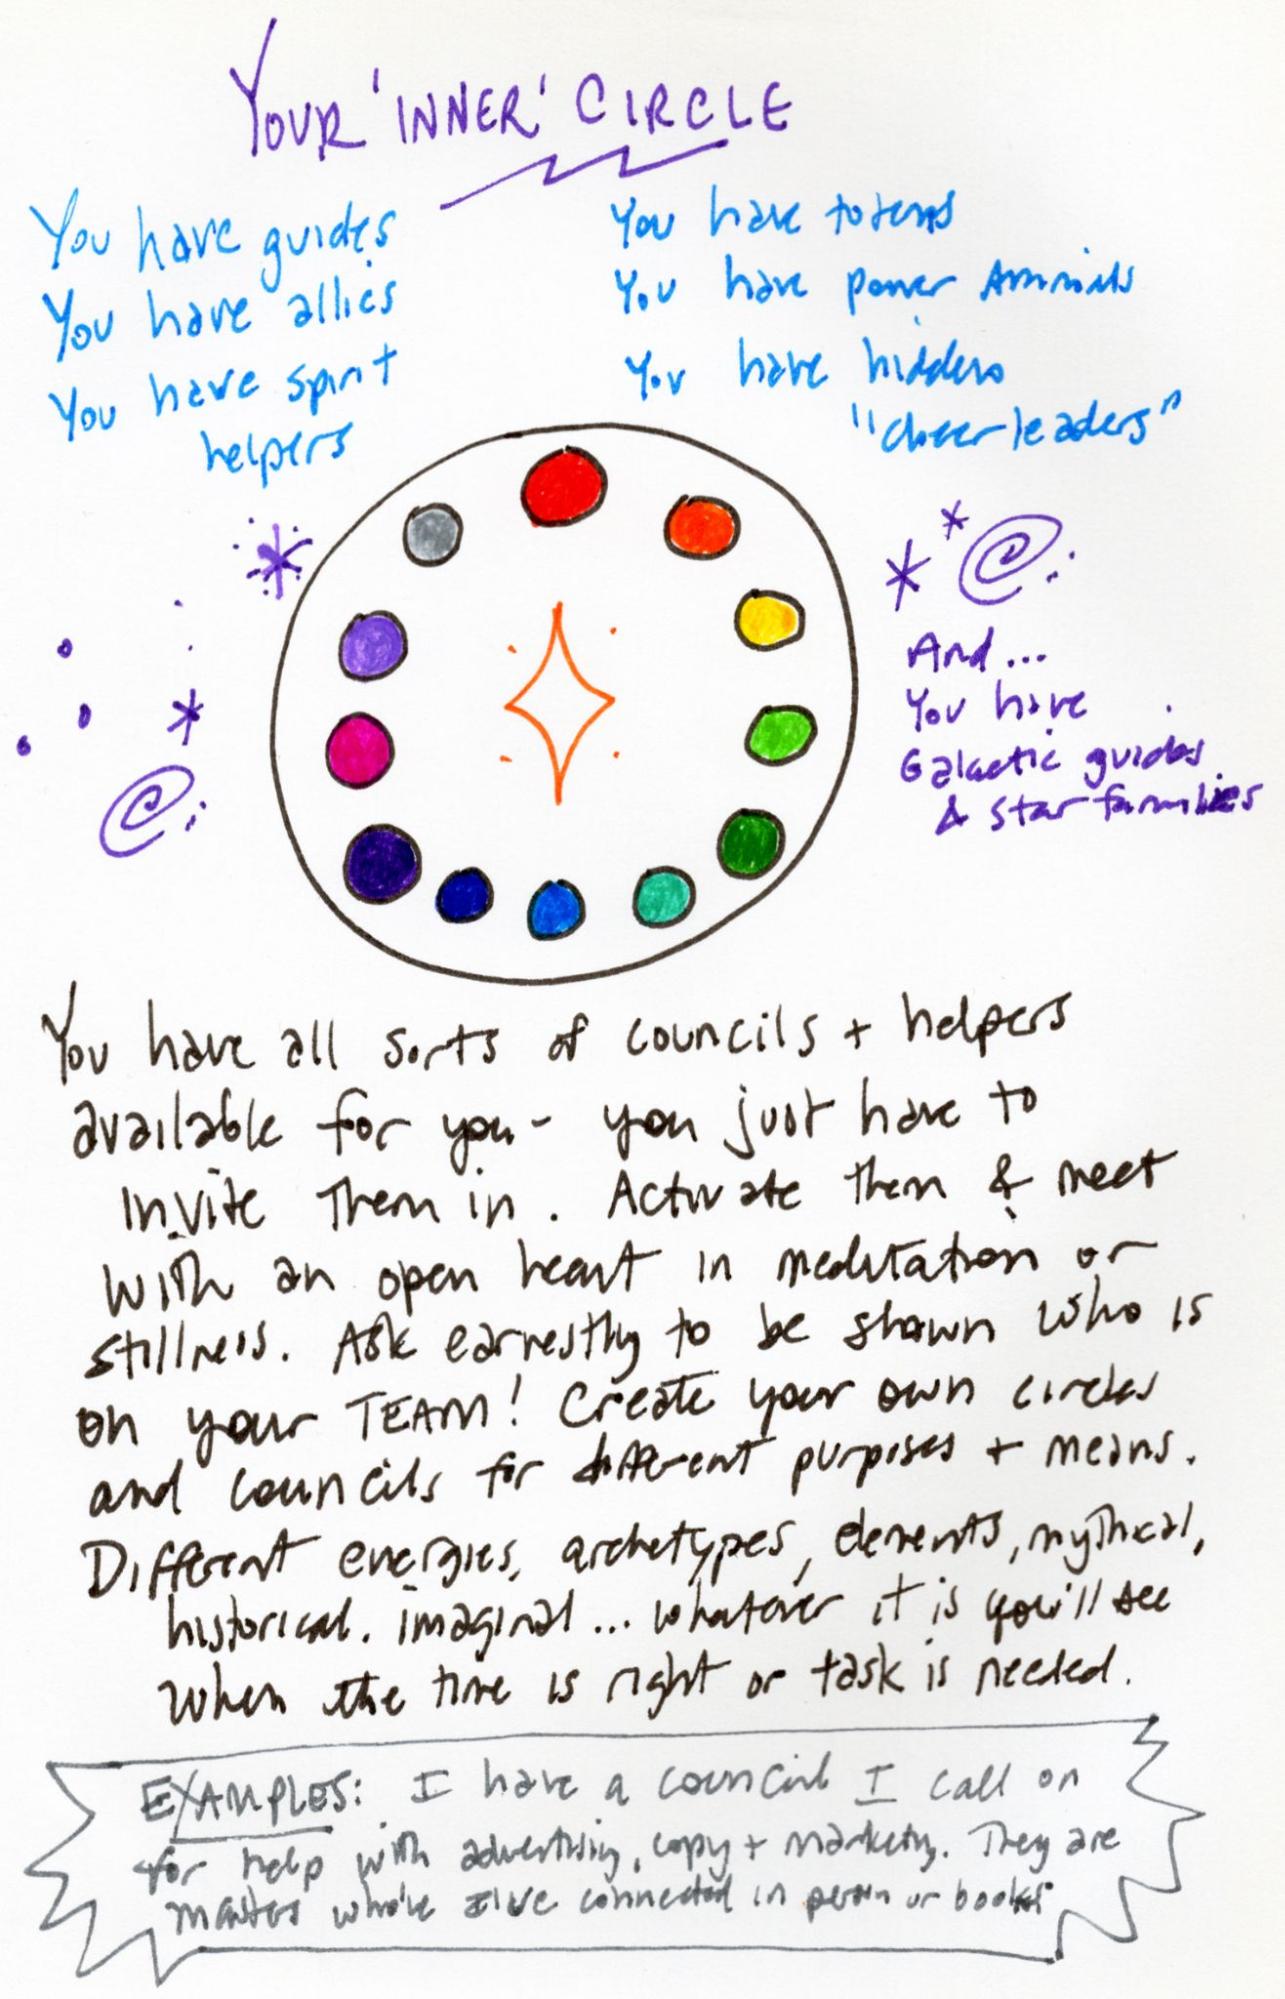 YOUR 'INNER' CIRCLE
You have guides
You have allies
You have spirit
helpers
You have totems
You have power Animals
You have hidden
"cheerleaders"
And...
You have
Galactic guides
& star families
You have all sorts of councils + helpers
available for you - you just have to
Invite Them in. Activate them & meet
with an open heart in meditation or
stillness. Ask earnestly to be shown who is
on your TEAM! Create your own circles
and councils for different purposes + means.
Different energies, archetypes, elements, mythical,
historical. imaginal... whatever it is you'll see
when the time is right or task is needed.
EXAMPLES: I have a council I call on
for help with advertising, copy + marketing. They are
masters who I've connected in person or books